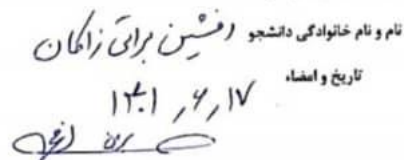 نام و نام خانوادگی دانشجو افشین براتی زاکان
تاریخ و امضاء
۱۴۰۱٫۶٫۱۷